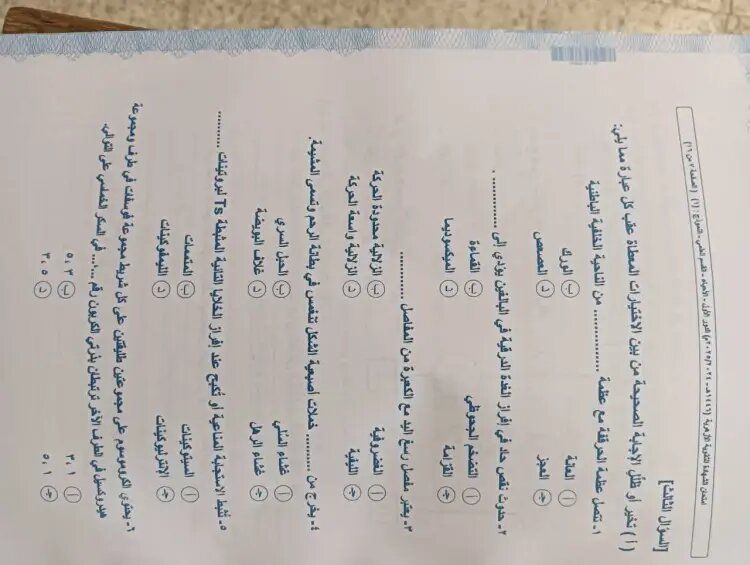 امتحان الشهادة الثانوية الأزهرية (١٤٤٦هـ - ٢٠٢٤/٢٠٢٥م) الدور الأول - الأحياء - القسم العلمي - النموذج: (١) (الصفحة ٢ من ١٦)
[السؤال الثالث]
(أ) تخير أو ظلل الإجابة الصحيحة من بين الاختيارات المعطاة عقب كل عبارة مما يلي:
١- تتصل عظمة الحرقفة مع عظمة .......... من الناحية الخلفية الباطنية
أ العانة
ب الورك
جـ العجز
د العصعص
٢- حدوث نقص حاد في إفراز الغدة الدرقية في البالغين يؤدي إلى ..........
التضخم الجحوظي
ب القماءة
جـ القزامة
د الميكسوديما
٣- يعتبر مفصل رسغ اليد مع الكعبرة من المفاصل ..........
أ الغضروفية
ب الزلالية محدودة الحركة
جـ الليفية
د الزلالية واسعة الحركة
٤- يخرج من .......... خملات أصبعية الشكل تنغمس في بطانة الرحم وتسمى المشيمة.
أ غشاء السلي
ب الحبل السري
جـ غشاء الرهل
د غلاف البويضة
٥- تثبط الاستجابة المناعية أو تكبح عند إفراز الخلايا التائية المثبطة Ts لبروتينات ..........
أ السيتوكينات
ب المتممات
جـ الإنترليوكينات
د الليمفوكينات
٦- يحتوي الكروموسوم على مجموعتين طليقتين على كل شريط مجموعة فوسفات في طرف ومجموعة
هيدروكسيل في الطرف الآخر ترتبطان بذرتي الكربون رقم ....، .... في السكر الخماسي على التوالي.
أ ٣، ١
ب ٥، ٣
جـ ٥، ١
د ٣، ٥